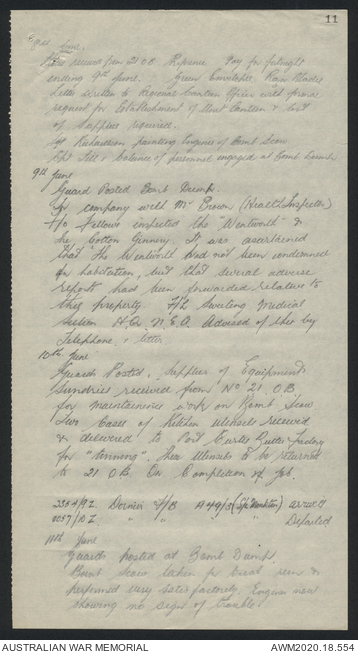 11
June.
received from 21 O.B. Pay for fortnight
ending 9th June. Green Envelopes, Razor Blades
Letter written to Regional Canteen Officer
request for Establishment of Unit Canteen & List
of Supplies required.
Richardson painting Engines of Bomb Scow
& balance of personnel engaged at Bomb
9th June
Guard Posted Bomb Dump.
In company with Mr (Health Inspector)
F/O Fellows inspected the "Wentworth" &
the Cotton Ginnery. It was ascertained
that the Wentworth had not been condemned
for habitation, but that several adverse
reports had been forwarded relative to
this property. F/L Sweeting Medical
section H.Q. N.E.A. Advised of this by
Telephone, & letter
10th June
Guards Posted. Supplies of Equipment
Sundries received from No 21 O.B.
for maintenance work on Bomb Scow
Two Cases of Kitchen utensils received
& delivered to Port Curtis Butter Factory
for "tinning". These Utensils to be returned
to 21 O.B. On Completion of Job.
Dornier F/B A49/3 arrived
" " " Departed
11th June
Guards posted at Bomb Dump.
Bomb Scow taken for trial run &
performed very satisfactorily Engine now
showing no sign of trouble
AUSTRALIAN WAR MEMORIAL
AWM2020.18.554